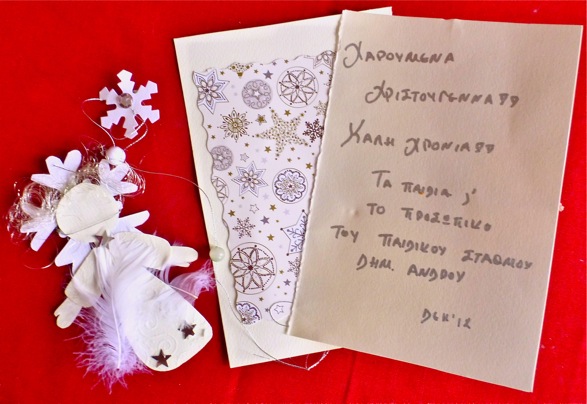 Χαρουμενα
Χριστουγεννα!!
Καλη Χρονια!!
Τα παιδια &
το προσωπικο
του παιδικου σταθμου
Δημ. Ανδρου
Δεκ '12